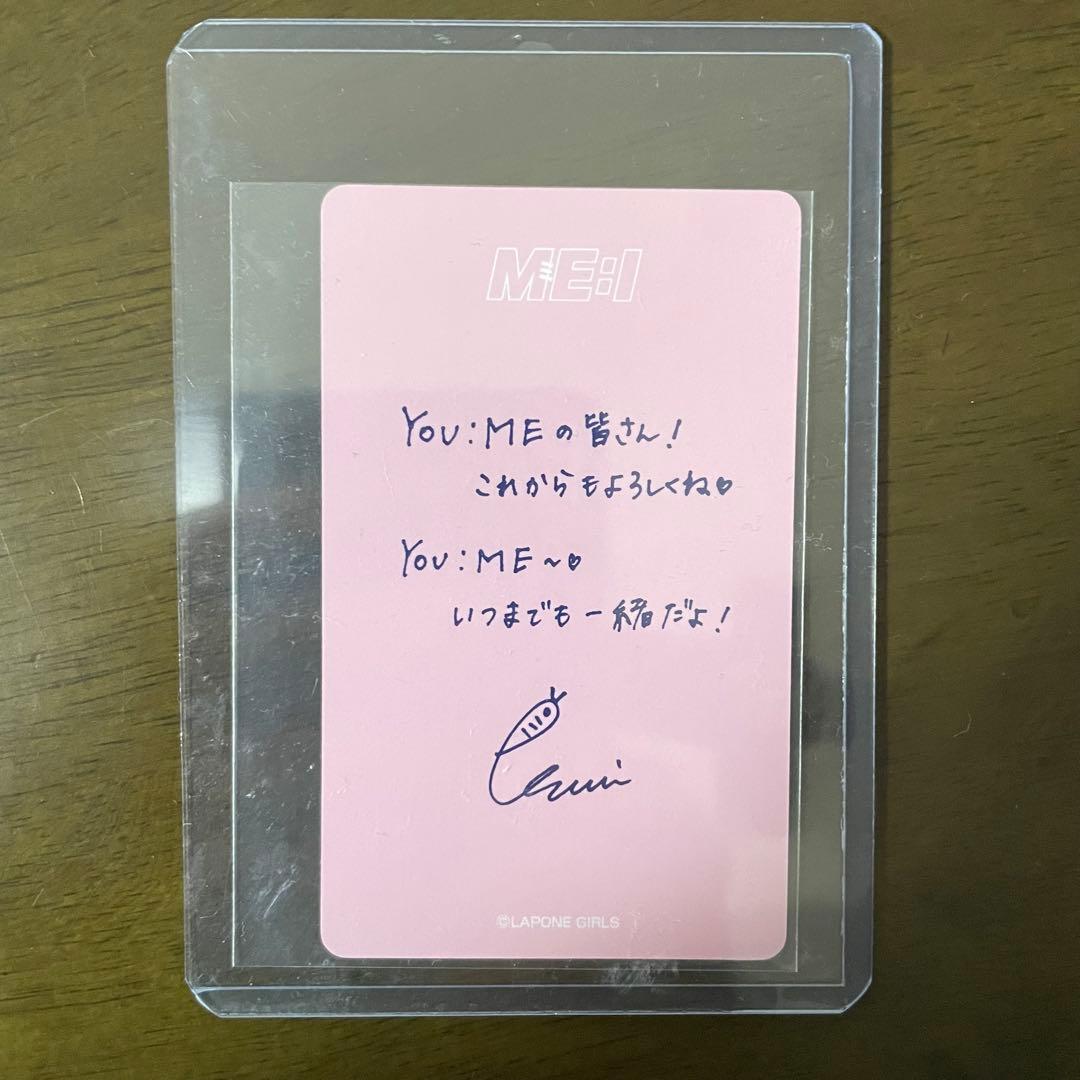 ME:I
YOU:MEの皆さん!
これからもよろしくね♡
YOU:ME~♡
いつまでも一緒だよ!
©LAPONE GIRLS